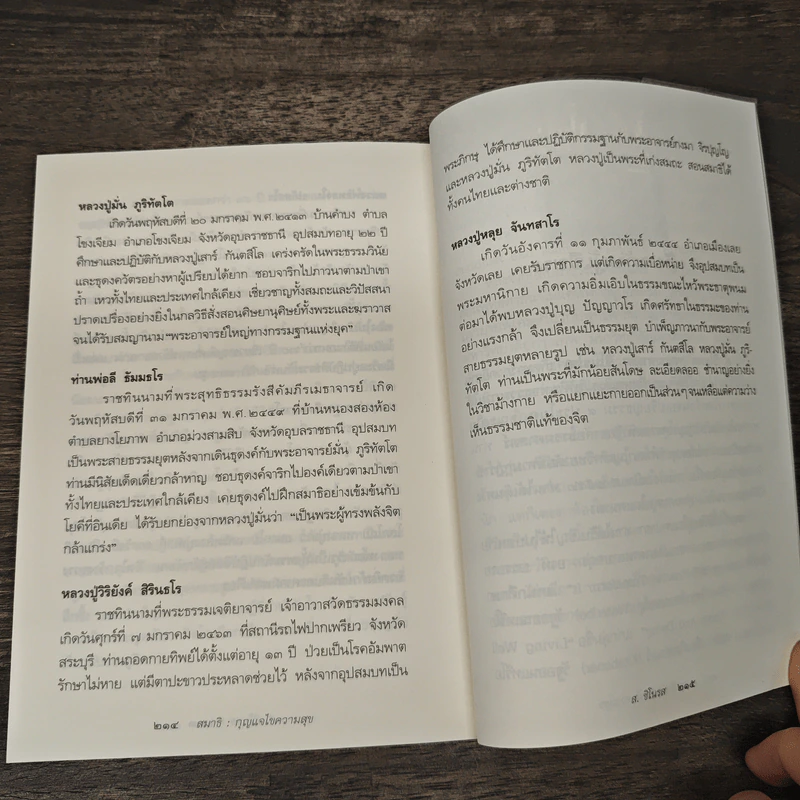 หลวงปู่มั่น ภูริทัตโต
เกิดวันพฤหัสบดีที่ ๒๐ มกราคม พ.ศ.๒๔๑๓ บ้านคำบง ตำบล
โขงเจียม อำเภอโขงเจียม จังหวัดอุบลราชธานี อุปสมบทอายุ ๒๒ ปี
ศึกษาและปฏิบัติกับหลวงปู่เสาร์ กันตสีโล เคร่งครัดในพระธรรมวินัย
และธุดงควัตรอย่างหาผู้เปรียบได้ยาก ชอบจาริกไปภาวนาตามป่าเขา
ถ้ำ เหวทั้งไทยและประเทศใกล้เคียง เชี่ยวชาญทั้งสมถะและวิปัสสนา
ปราดเปรื่องอย่างยิ่งในกลวิธีสั่งสอนศิษยานุศิษย์ทั้งพระและฆราวาส
จนได้รับสมญานาม “พระอาจารย์ใหญ่ทางกรรมฐานแห่งยุค”
ท่านพ่อลี ธัมมธโร
ราชทินนามที่พระสุทธิธรรมรังสีคัมภีรเมธาจารย์ เกิด
วันพฤหัสบดีที่ ๓๑ มกราคม พ.ศ.๒๔๔๙ ที่บ้านหนองสองห้อง
ตำบลยางโยภาพ อำเภอม่วงสามสิบ จังหวัดอุบลราชธานี อุปสมบท
เป็นพระสายธรรมยุตหลังจากเดินธุดงค์กับพระอาจารย์มั่น ภูริทัตโต
ท่านมีนิสัยเด็ดเดี่ยวกล้าหาญ ชอบธุดงค์จาริกไปองค์เดียวตามป่าเขา
ทั้งไทยและประเทศใกล้เคียง เคยธุดงค์ไปฝึกสมาธิอย่างเข้มข้นกับ
โยคีที่อินเดีย ได้รับยกย่องจากหลวงปู่มั่นว่า “เป็นพระผู้ทรงพลังจิต
กล้าแกร่ง”
หลวงปู่วิริยังค์ สิรินธโร
ราชทินนามที่พระธรรมเจติยาจารย์ เจ้าอาวาสวัดธรรมมงคล
เกิดวันศุกร์ที่ ๗ มกราคม ๒๔๖๓ ที่สถานีรถไฟปากเพรียว จังหวัด
สระบุรี ท่านถอดกายทิพย์ได้ตั้งแต่อายุ ๑๓ ปี ป่วยเป็นโรคอัมพาต
รักษาไม่หาย แต่มีตาปะขาวประหลาดช่วยไว้ หลังจากอุปสมบทเป็น
๒๑๔ สมาธิ : กุญแจไขความสุข
พระภิกษุ ได้ศึกษาและปฏิบัติกรรมฐานกับพระอาจารย์กงมา จิรปุญโญ
และหลวงปู่มั่น ภูริทัตโต หลวงปู่เป็นพระที่เก่งสมถะ สอนสมาธิได้
ทั้งคนไทยและต่างชาติ
หลวงปู่หลุย จันทสาโร
เกิดวันอังคารที่ ๑๑ กุมภาพันธ์ ๒๔๔๔ อำเภอเมืองเลย
จังหวัดเลย เคยรับราชการ แต่เกิดความเบื่อหน่าย จึงอุปสมบทเป็น
พระมหานิกาย เกิดความอิ่มเอิบในธรรมขณะไหว้พระธาตุพนม
ต่อมาได้พบหลวงปู่บุญ ปัญญาวโร เกิดศรัทธาในธรรมะของท่าน
อย่างแรงกล้า จึงเปลี่ยนเป็นธรรมยุต บำเพ็ญภาวนากับพระอาจารย์
สายธรรมยุตหลายรูป เช่น หลวงปู่เสาร์ กันตสีโล หลวงปู่มั่น ภูริ-
ทัตโต ท่านเป็นพระที่มักน้อยสันโดษ ละเอียดลออ ชำนาญอย่างยิ่ง
ในวิชาม้างกาย หรือแยกแยะกายออกเป็นส่วนๆจนเหลือแต่ความว่าง
เห็นธรรมชาติแท้ของจิต
ส. ชิโนรส ๒๑๕